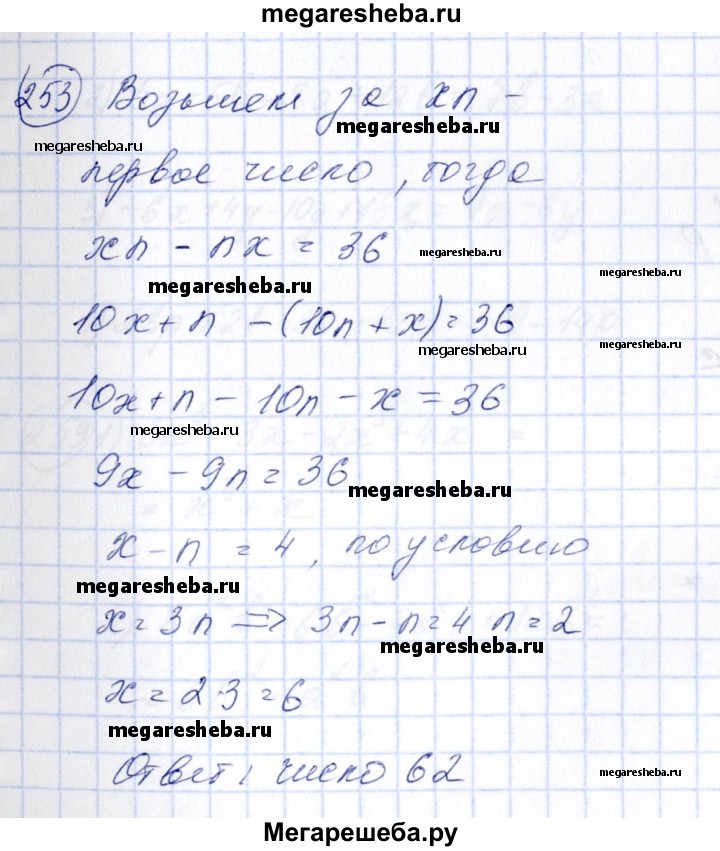 megaresheba.ru
253 Возьмем за xn -
megaresheba.ru
megaresheba.ru
первое число, тогда
xn - nx = 36
megaresheba.ru
megaresheba.ru
megaresheba.ru
10x + n - (10n + x) = 36
megaresheba.ru
megaresheba.ru
10x + n - 10n - x = 36
megaresheba.ru
9x - 9n = 36
megaresheba.ru
x - n = 4, по условию
megaresheba.ru
x = 3n => 3n - n = 4 n = 2
megaresheba.ru
x = 2·3 = 6
megaresheba.ru
Ответ: число 62
megaresheba.ru
Мегарешеба.ру